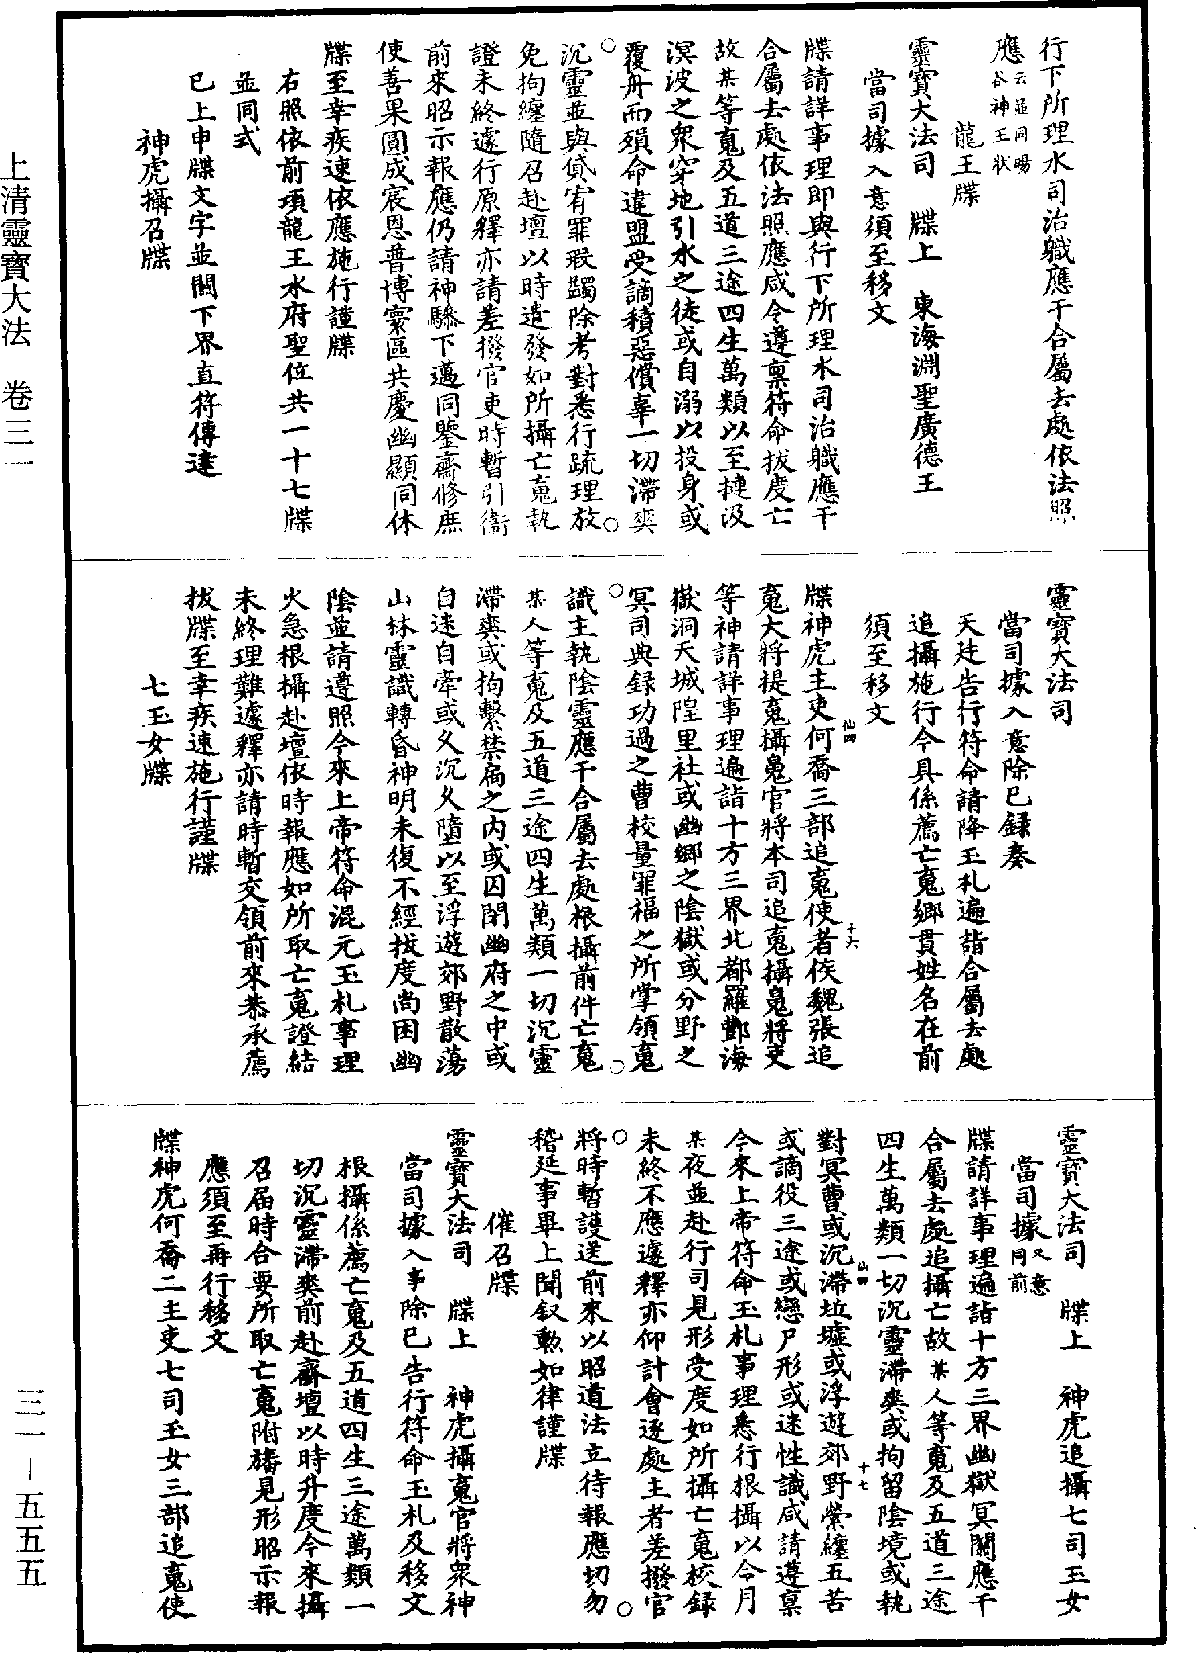 行下所理水司治職應干合屬去處依法照
應云並同暘
谷神王狀
龍王牒
靈寶大法司　牒上　東海淵聖廣德王
當司據入意須至移文
牒請詳事理即與行下所理水司治職應干
合屬去處依法照應咸令遵稟符命拔度亡
故某等䰟及五道三途四生萬類以至捷汲
溟波之衆穿地引水之徒或自溺以投身或
覆舟而殞命違盟受謫積惡償辜一切滯爽
沉靈並與貸宥罪瑕蠲除考對悉行疏理放
免拘纏隨召赴壇以時遣發如所攝亡䰟執
證未終遽行原釋亦請差撥官吏時暫引衞
前來昭示報應仍請神驂下邁同鑒齋修庶
使善果圓成宸恩普博寰區共慶幽顯同休
牒至幸疾速依應施行謹牒
右照依前項龍王水府聖位共一十七牒
並同式
已上申牒文字並關下界直符傳達
神虎攝召牒
靈寶大法司
當司據入意除已録奏
天廷告行符命請降玉札遍詣合屬去處
追攝施行今具係薦亡䰟鄉貫姓名在前
須至移文
牒神虎主吏何喬三部追䰟使者侯魏張追
䰟大將提䰟攝䰟官將本司追䰟攝䰟將吏
等神請詳事理遍詣十方三界北都羅酆海
嶽洞天城隍里社或幽鄉之陰獄或分野之
冥司典録功過之曹校量罪福之所掌領䰟
識主執陰靈應干合屬去處根攝前件亡䰟
某人等䰟及五道三途四生萬類一切沉靈
滯爽或拘繫禁扃之內或囚閉幽府之中或
自迷自牽或久沉久墮以至浮遊郊野散蕩
山林靈識轉昏神明未復不經拔度尚困幽
陰並請遵照今來上帝符命混元玉札事理
火急根攝赴壇依時報應如所取亡䰟證結
未終理難遽釋亦請時暫交領前來恭承薦
拔牒至幸疾速施行謹牒
七玉女牒
靈寶大法司　牒上　神虎追攝七司玉女
當司據入意
同前
牒請詳事理遍詣十方三界幽獄冥關應干
合屬去處追攝亡故某人等䰟及五道三途
四生萬類一切沉靈滯爽或拘留陰境或執
對冥曹或沉滯坵墟或浮遊郊野縈纏五苦
或謫役三途或戀尸形或迷性識咸請遵稟
今來上帝符命玉札事理悉行根攝以今月
某夜並赴行司見形受度如所攝亡䰟校録
未終不應遽釋亦仰計會逐處主者差撥官
將時暫護送前來以昭道法立待報應切勿
稽延事畢上聞叙勲如律謹牒
催召牒
靈寶大法司　牒上　神虎攝䰟官將衆神
當司據入事除已告行符命玉札及移文
根攝係薦亡䰟及五道四生三途萬類一
切沉靈滯爽前赴齋壇以時升度今來攝
召届時合要所取亡䰟附旛見形昭示報
應須至再行移文
牒神虎何喬二主吏七司玉女三部追䰟使
上清靈寶大法　卷三一
三一—五五五